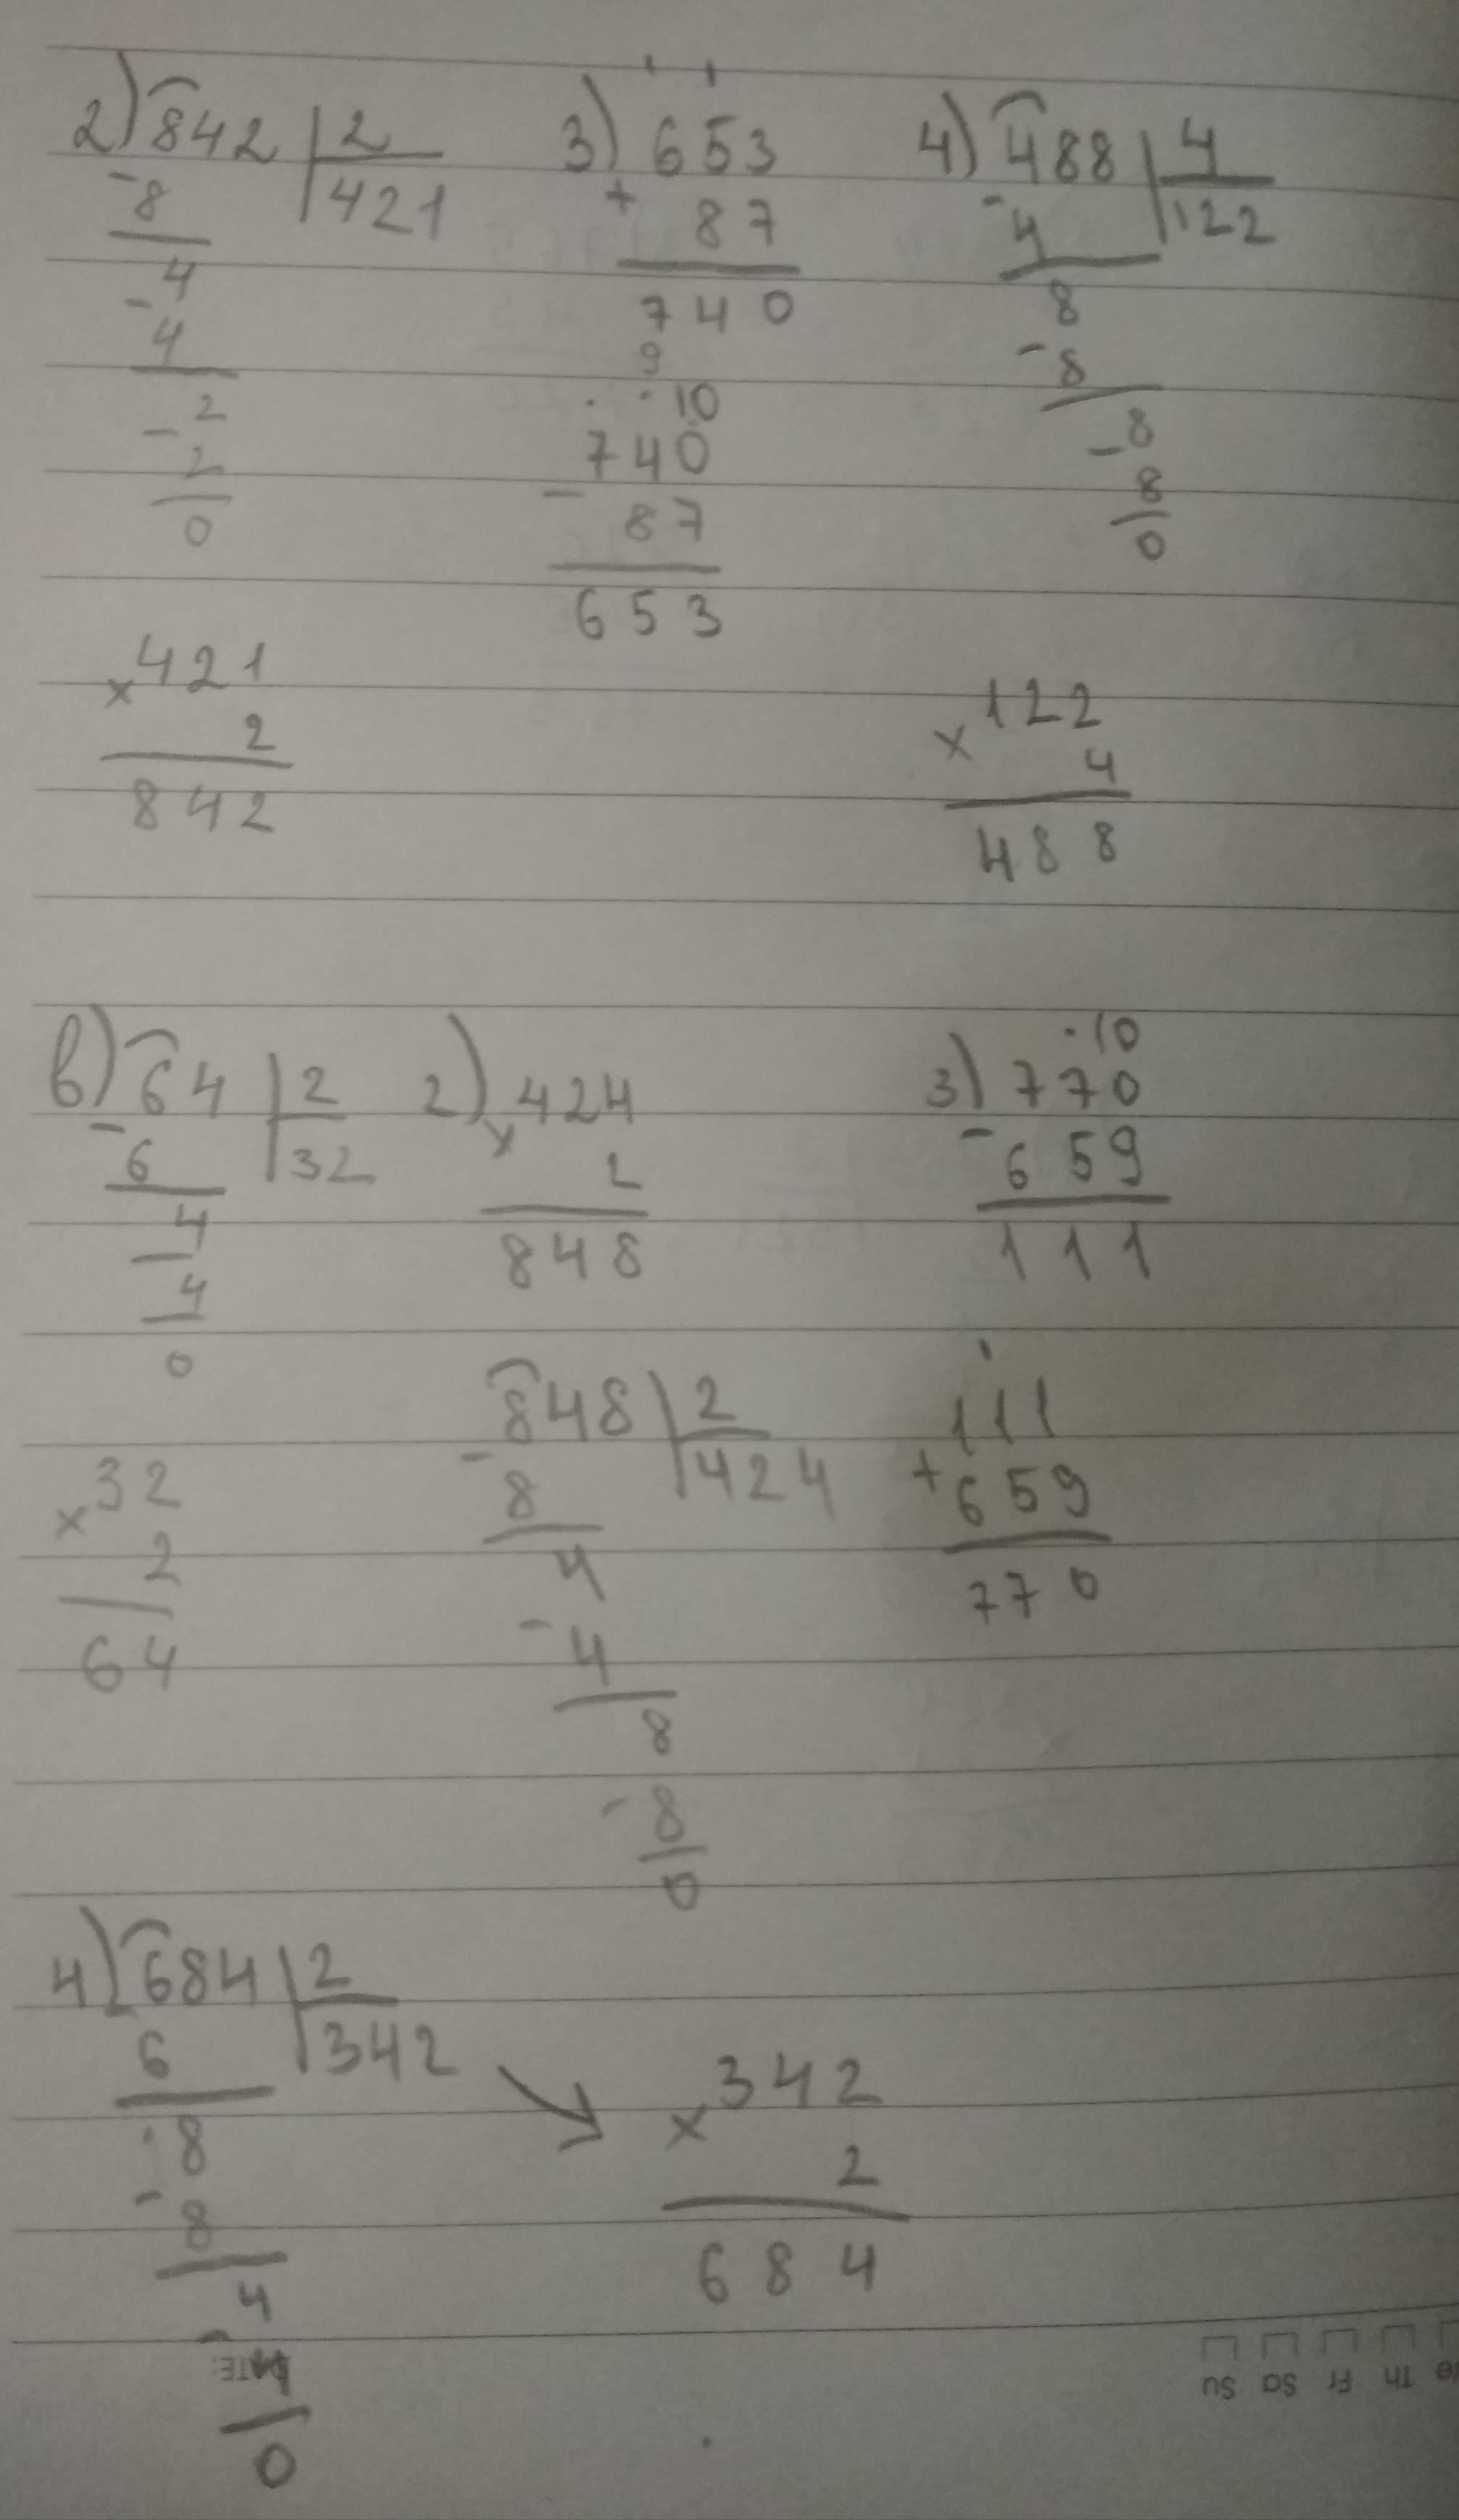 2) 842 | 2
- 8 | 421
4
- 4
2
- 2
0
421
× 2
842
3) 653
+ 87
740
9
. . 10
740
- 87
653
4) 488 | 4
- 4 | 122
8
- 8
8
- 8
0
122
× 4
488
в) 64 | 2
- 6 | 32
4
- 4
0
32
× 2
64
2) 424
× 2
848
848 | 2
- 8 | 424
4
- 4
8
- 8
0
3) . 10
770
- 659
111
1
111
+ 659
770
4) 684 | 2
- 6 | 342
8
- 8
4
- 4
0
342
× 2
684
Th Fr Sa Su